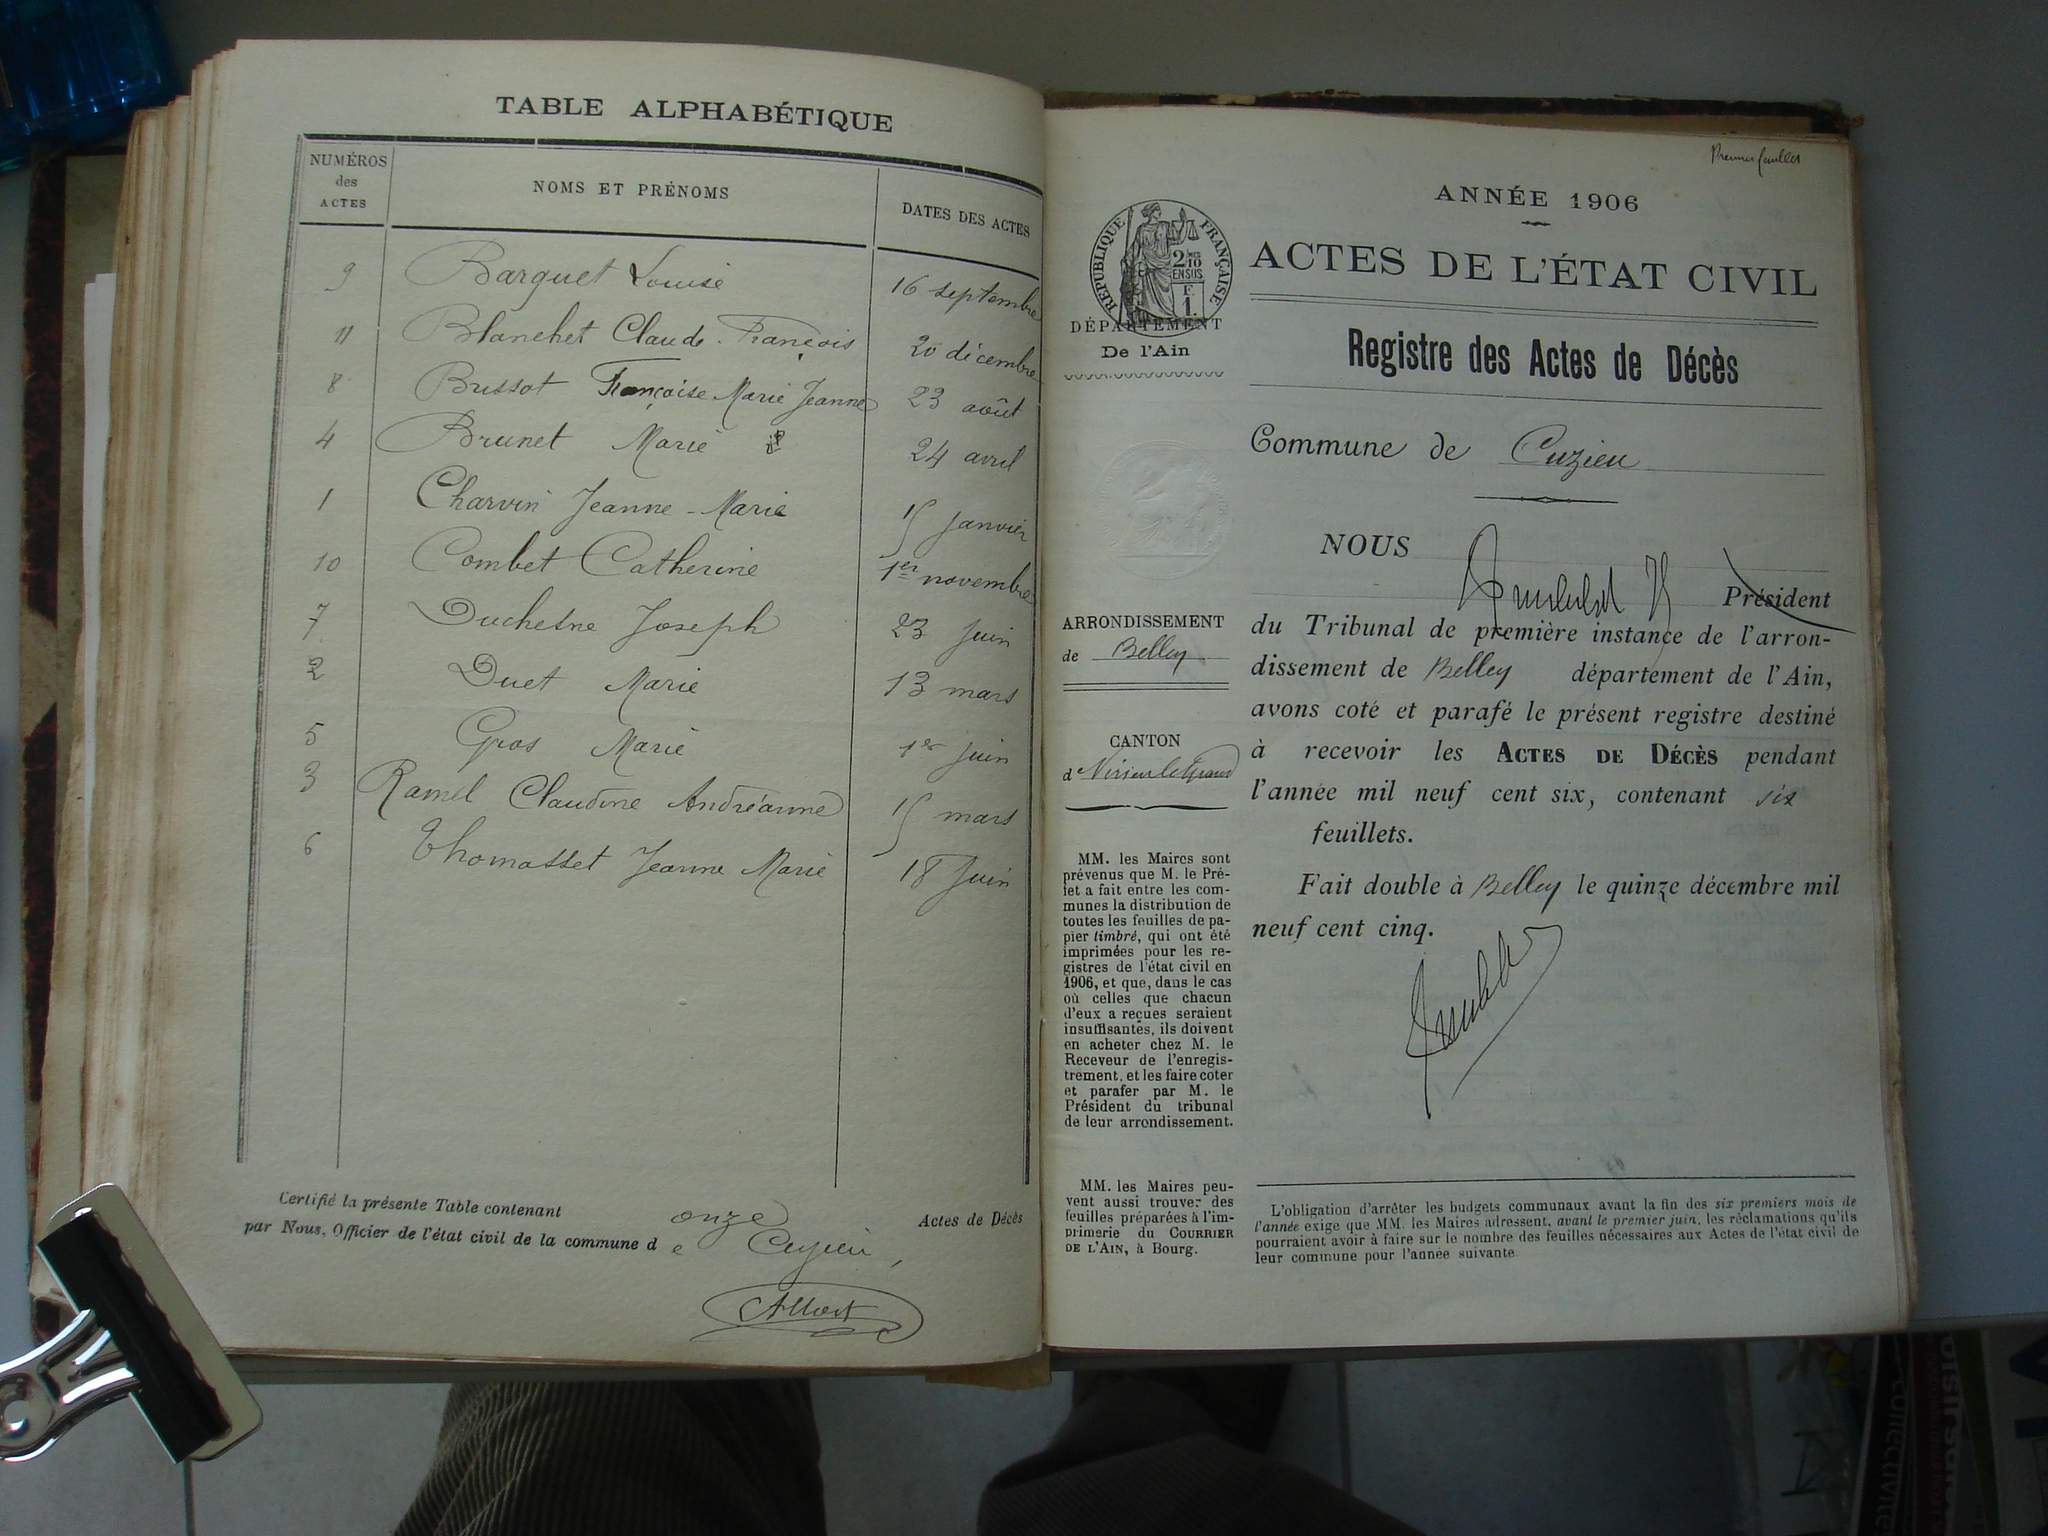 TABLE ALPHABÉTIQUE
NUMÉROS des ACTES
NOMS ET PRÉNOMS
DATES DES ACTES
9 Barquet Louise 16 septembre
11 Blanchet Claude-François 20 décembre
8 Bussot Françoise Marie Jeanne 23 août
4 Brunet Marie 24 avril
1 Charvin Jeanne-Marie 15 janvier
10 Combet Catherine 1er novembre
7 Duchesne Joseph 23 juin
2 Duet Marie 13 mars
5 Gros Marie 1er juin
3 Ramel Claudine Andréanne 15 mars
6 Thomasset Jeanne Marie 18 juin
Certifié la présente Table contenant onze Actes de Décès
par Nous, Officier de l'état civil de la commune de Cuzieu,
Premier feuillet
ANNÉE 1906
RÉPUBLIQUE FRANÇAISE
2/10
EN SUS
F.
1.
DÉPARTEMENT
De l'Ain
ACTES DE L'ÉTAT CIVIL
Registre des Actes de Décès
Commune de Cuzieu
NOUS
Président
du Tribunal de première instance de l'arron-
dissement de Belley département de l'Ain,
avons coté et parafé le présent registre destiné
à recevoir les ACTES DE DÉCÈS pendant
l'année mil neuf cent six, contenant six
feuillets.
Fait double à Belley le quinze décembre mil
neuf cent cinq.
ARRONDISSEMENT
de Belley
CANTON
d Virieu le Grand
MM. les Maires sont
prévenus que M. le Pré-
fet a fait entre les com-
munes la distribution de
toutes les feuilles de pa-
pier timbré, qui ont été
imprimées pour les re-
gistres de l'état civil en
1906, et que, dans le cas
où celles que chacun
d'eux a reçues seraient
insuffisantes, ils doivent
en acheter chez M. le
Receveur de l'enregis-
trement, et les faire coter
et parafer par M. le
Président du tribunal
de leur arrondissement.
MM. les Maires peu-
vent aussi trouver des
feuilles préparées à l'im-
primerie du COURRIER
DE L'AIN, à Bourg.
L'obligation d'arrêter les budgets communaux avant la fin des six premiers mois de
l'année exige que MM. les Maires adressent, avant le premier juin, les réclamations qu'ils
pourraient avoir à faire sur le nombre des feuilles nécessaires aux Actes de l'état civil de
leur commune pour l'année suivante